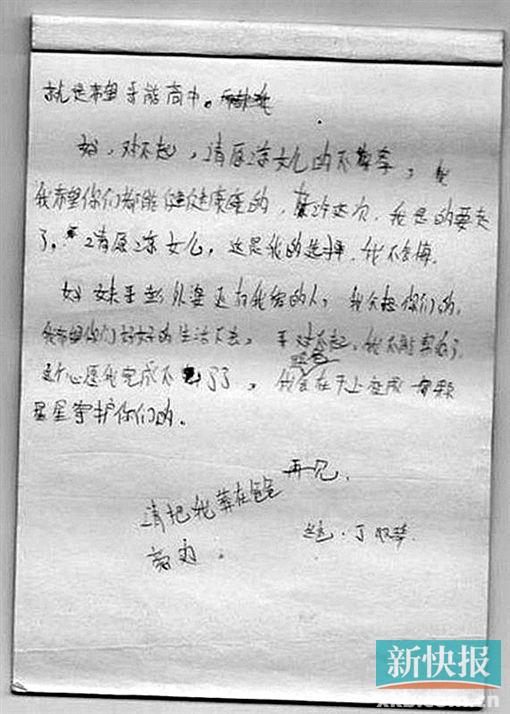 就是希望手能高中。
妈，对不起，请原凉女儿的不孝，
我希望你们都能健健康康的，这次，我真的要走
了。请原凉女儿，这是我的选择，我不会悔
妈 妹 外婆还有我爸的人，我会想你们的，
我希望你们好好的生活下去，对不起，我不能帮你了
这个心愿我完成不了了，我会在天上变成一颗
星星守护你们的。
再见，
请把我葬在爸爸
旁边。
丁
新快报
xkb.com.cn